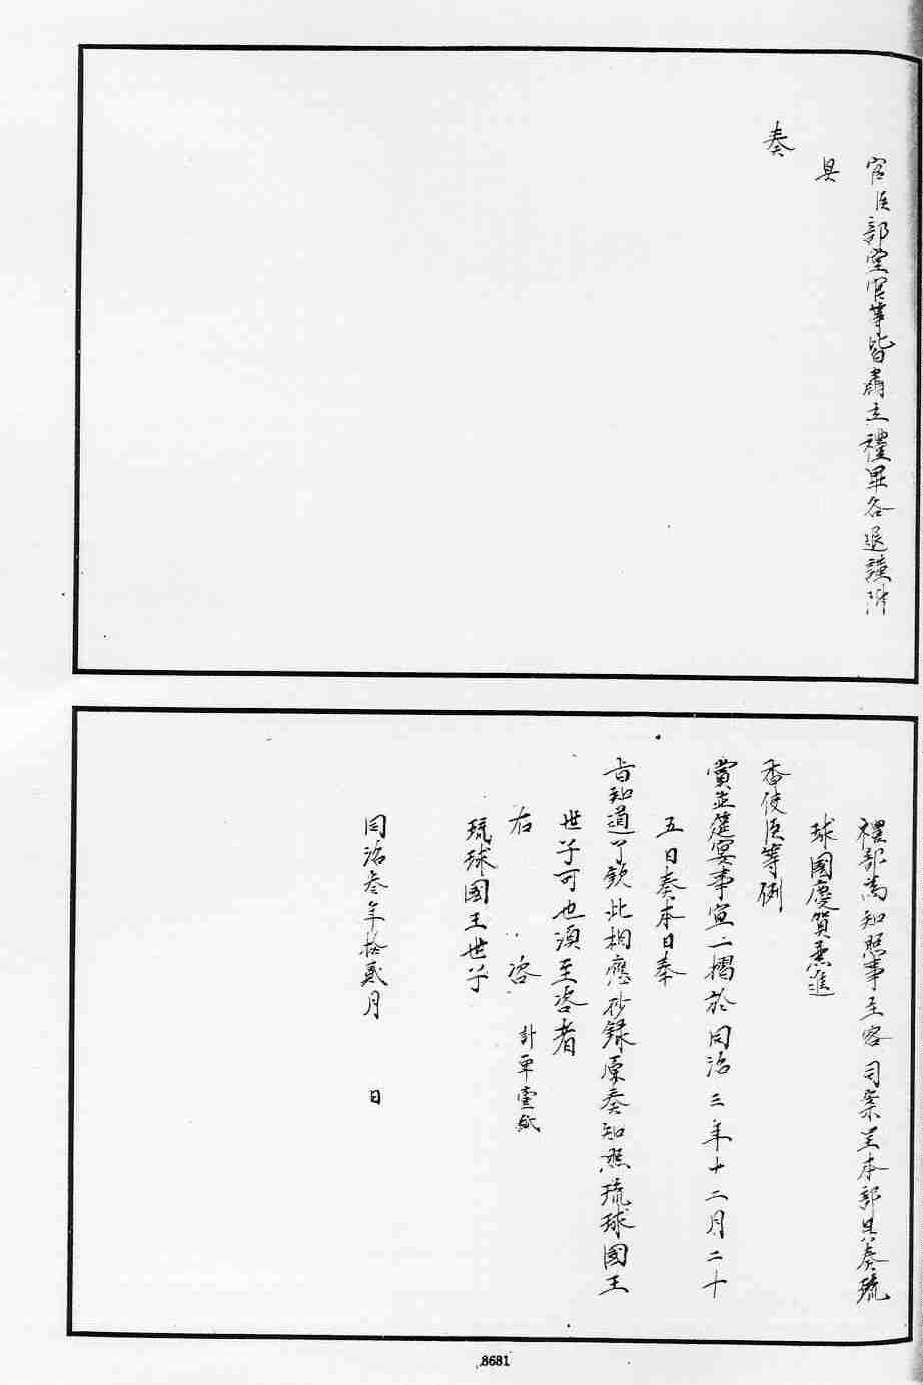 官臣部堂官等皆肅立禮畢各退謹附
具
奏
禮部為知照事主客司案呈本部具奏琉
球國慶賀兼進
香使臣等例
賞並筵宴事宜二摺於同治三年十二月二十
五日奏本日奉
旨知道了欽此相應抄錄原奏知照琉球國王
世子可也須至咨者
計單壹紙
右 咨
琉球國王世子
同治叁年拾貳月 日
8681